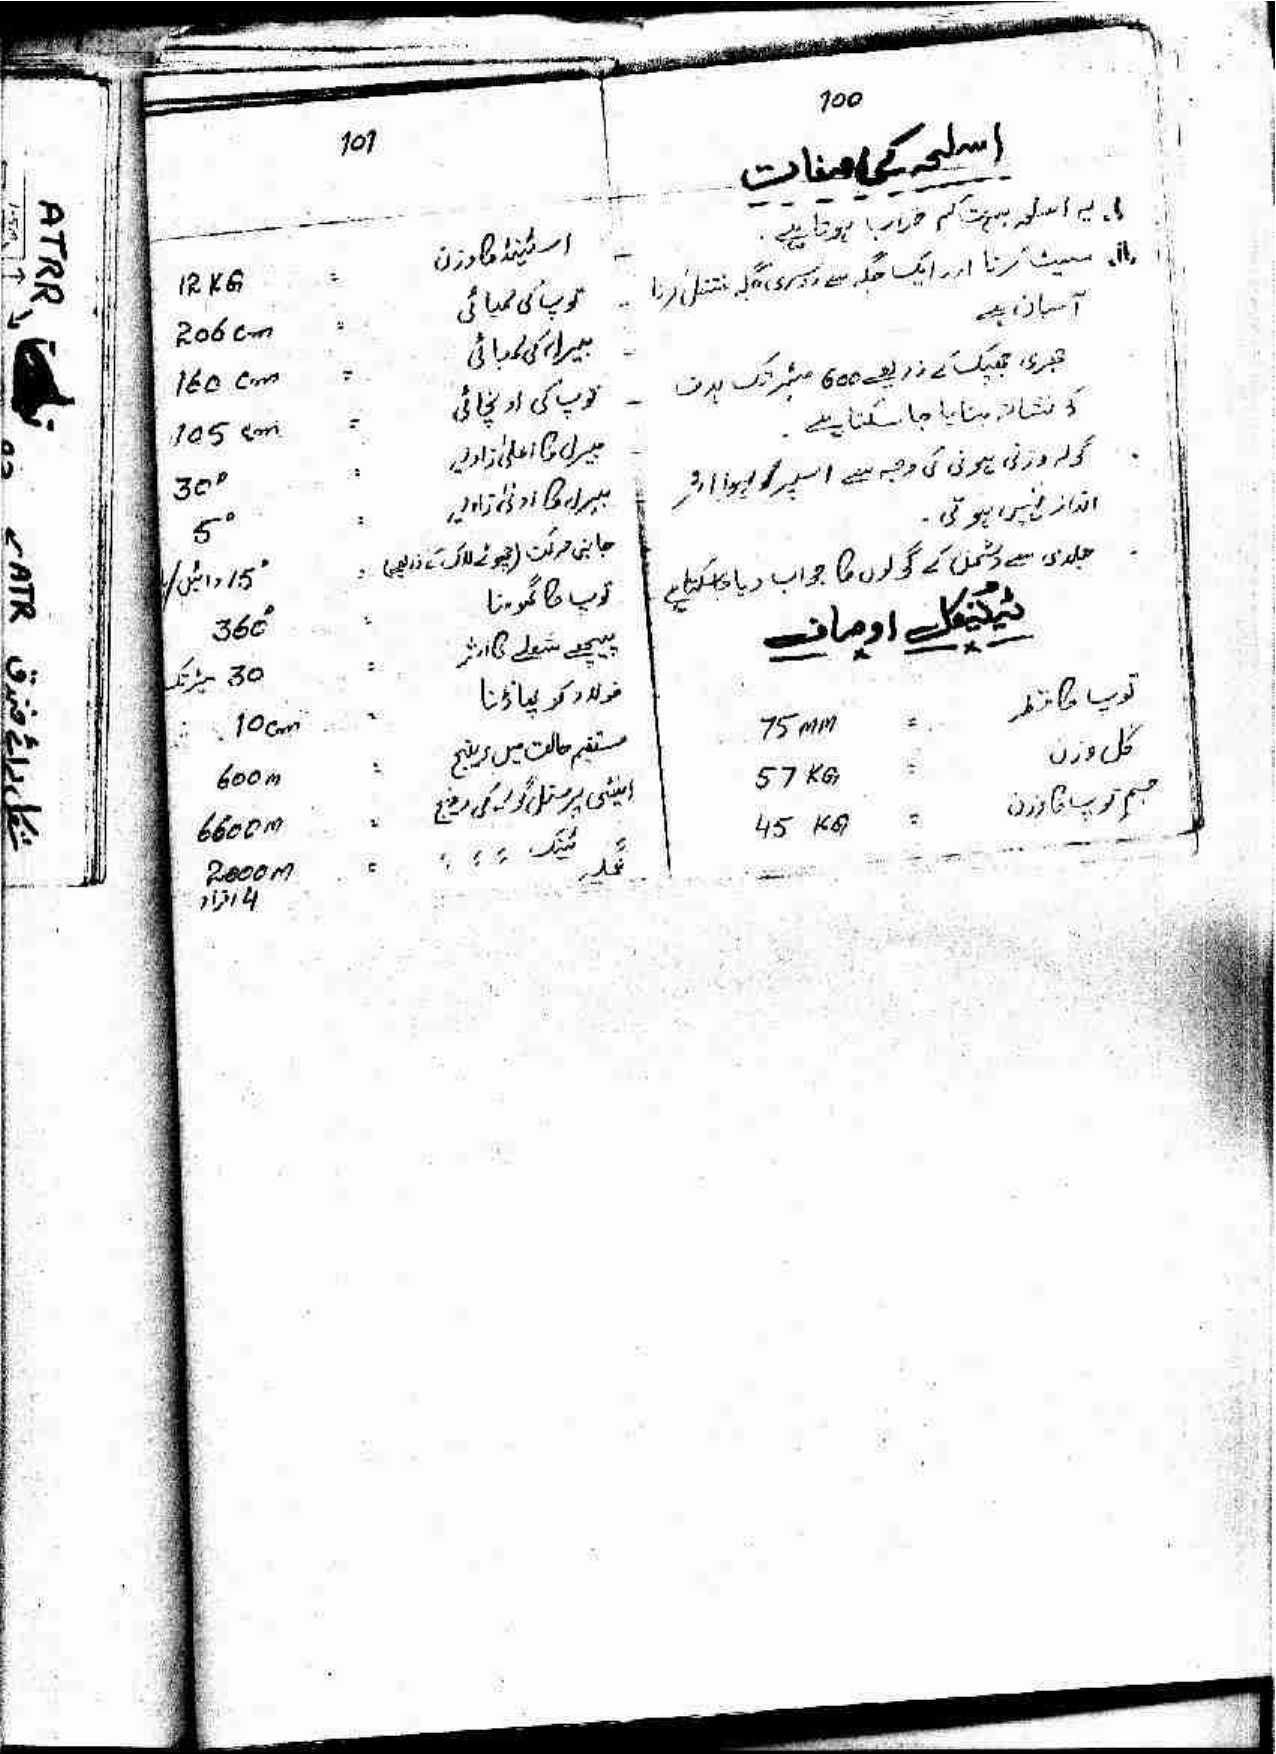 100
اسلحہ کی صفات
i. یہ اسلحہ بہت کم خراب ہوتا ہے۔
ii. سیٹ کرنا اور ایک جگہ سے دوسری جگہ منتقل کرنا
آسان ہے
کے ذریعے 600 میٹر تک ہدف
کو نشانہ بنایا جا سکتا ہے۔
گولہ وزنی ہونے کی وجہ سے اسپر ہوا اثر
انداز نہیں ہوتی۔
جلدی سے دشمن کے گولوں کا جواب دیا جا سکتا ہے
ٹیکنیکل اوصاف
توپ کا قطر = 75 MM
کل وزن = 57 KG
جسم توپ کا وزن = 45 KG
101
اسٹینڈ کا وزن = 12 KG
توپ کی لمبائی = 206 cm
بیرل کی لمبائی = 160 cm
توپ کی اونچائی = 105 cm
بیرل کا اعلیٰ زاویہ = 30°
بیرل کا ادنیٰ زاویہ = 5°
جانبی حرکت (چھوٹے لاک کے ذریعے) = 15° دائیں/
توپ کا گھومنا = 360°
پیچھے شعلے کا اثر = 30 میٹر تک
فولاد کو پھاڑنا = 10 cm
مستقیم حالت میں رینج = 600 m
گولے کی رینج = 6600 m
ٹینک = 2000 m
عملہ 4 افراد
ATRR
ATR